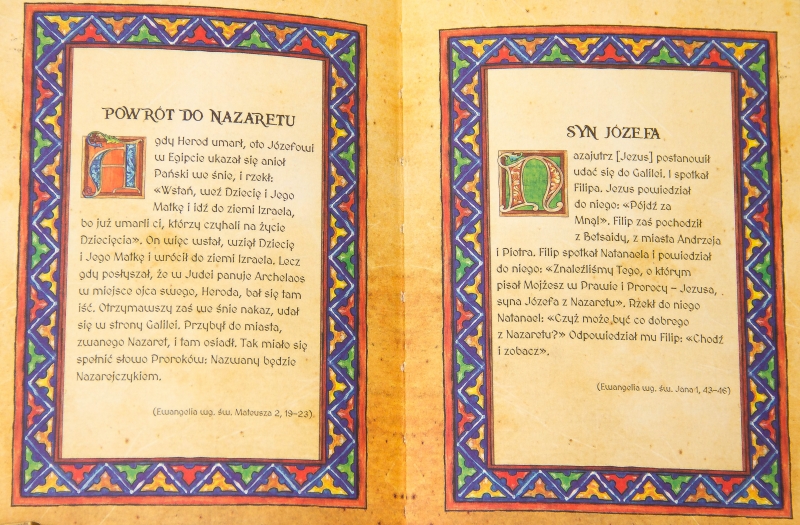 POWRÓT DO NAZARETU
A gdy Herod umarł, oto Józefowi
w Egipcie ukazał się anioł
Pański we śnie, i rzekł:
«Wstań, weź Dziecię i Jego
Matkę i idź do ziemi Izraela,
bo już umarli ci, którzy czyhali na życie
Dziecięcia». On więc wstał, wziął Dziecię
i Jego Matkę i wrócił do ziemi Izraela. Lecz
gdy posłyszał, że w Judei panuje Archelaos
w miejsce ojca swego, Heroda, bał się tam
iść. Otrzymawszy zaś we śnie nakaz, udał
się w strony Galilei. Przybył do miasta,
zwanego Nazaret, i tam osiadł. Tak miało się
spełnić słowo Proroków: Nazwany będzie
Nazarejczykiem.
(Ewangelia wg. św. Mateusza 2, 19–23).
SYN JÓZEFA
Nazajutrz [Jezus] postanowił
udać się do Galilei. I spotkał
Filipa. Jezus powiedział
do niego: «Pójdź za
Mną!». Filip zaś pochodził
z Betsaidy, z miasta Andrzeja
i Piotra. Filip spotkał Natanaela i powiedział
do niego: «Znaleźliśmy Tego, o którym
pisał Mojżesz w Prawie i Prorocy – Jezusa,
syna Józefa z Nazaretu». Rzekł do niego
Natanael: «Czyż może być co dobrego
z Nazaretu?» Odpowiedział mu Filip: «Chodź
i zobacz».
(Ewangelia wg. św. Jana 1, 43–46)